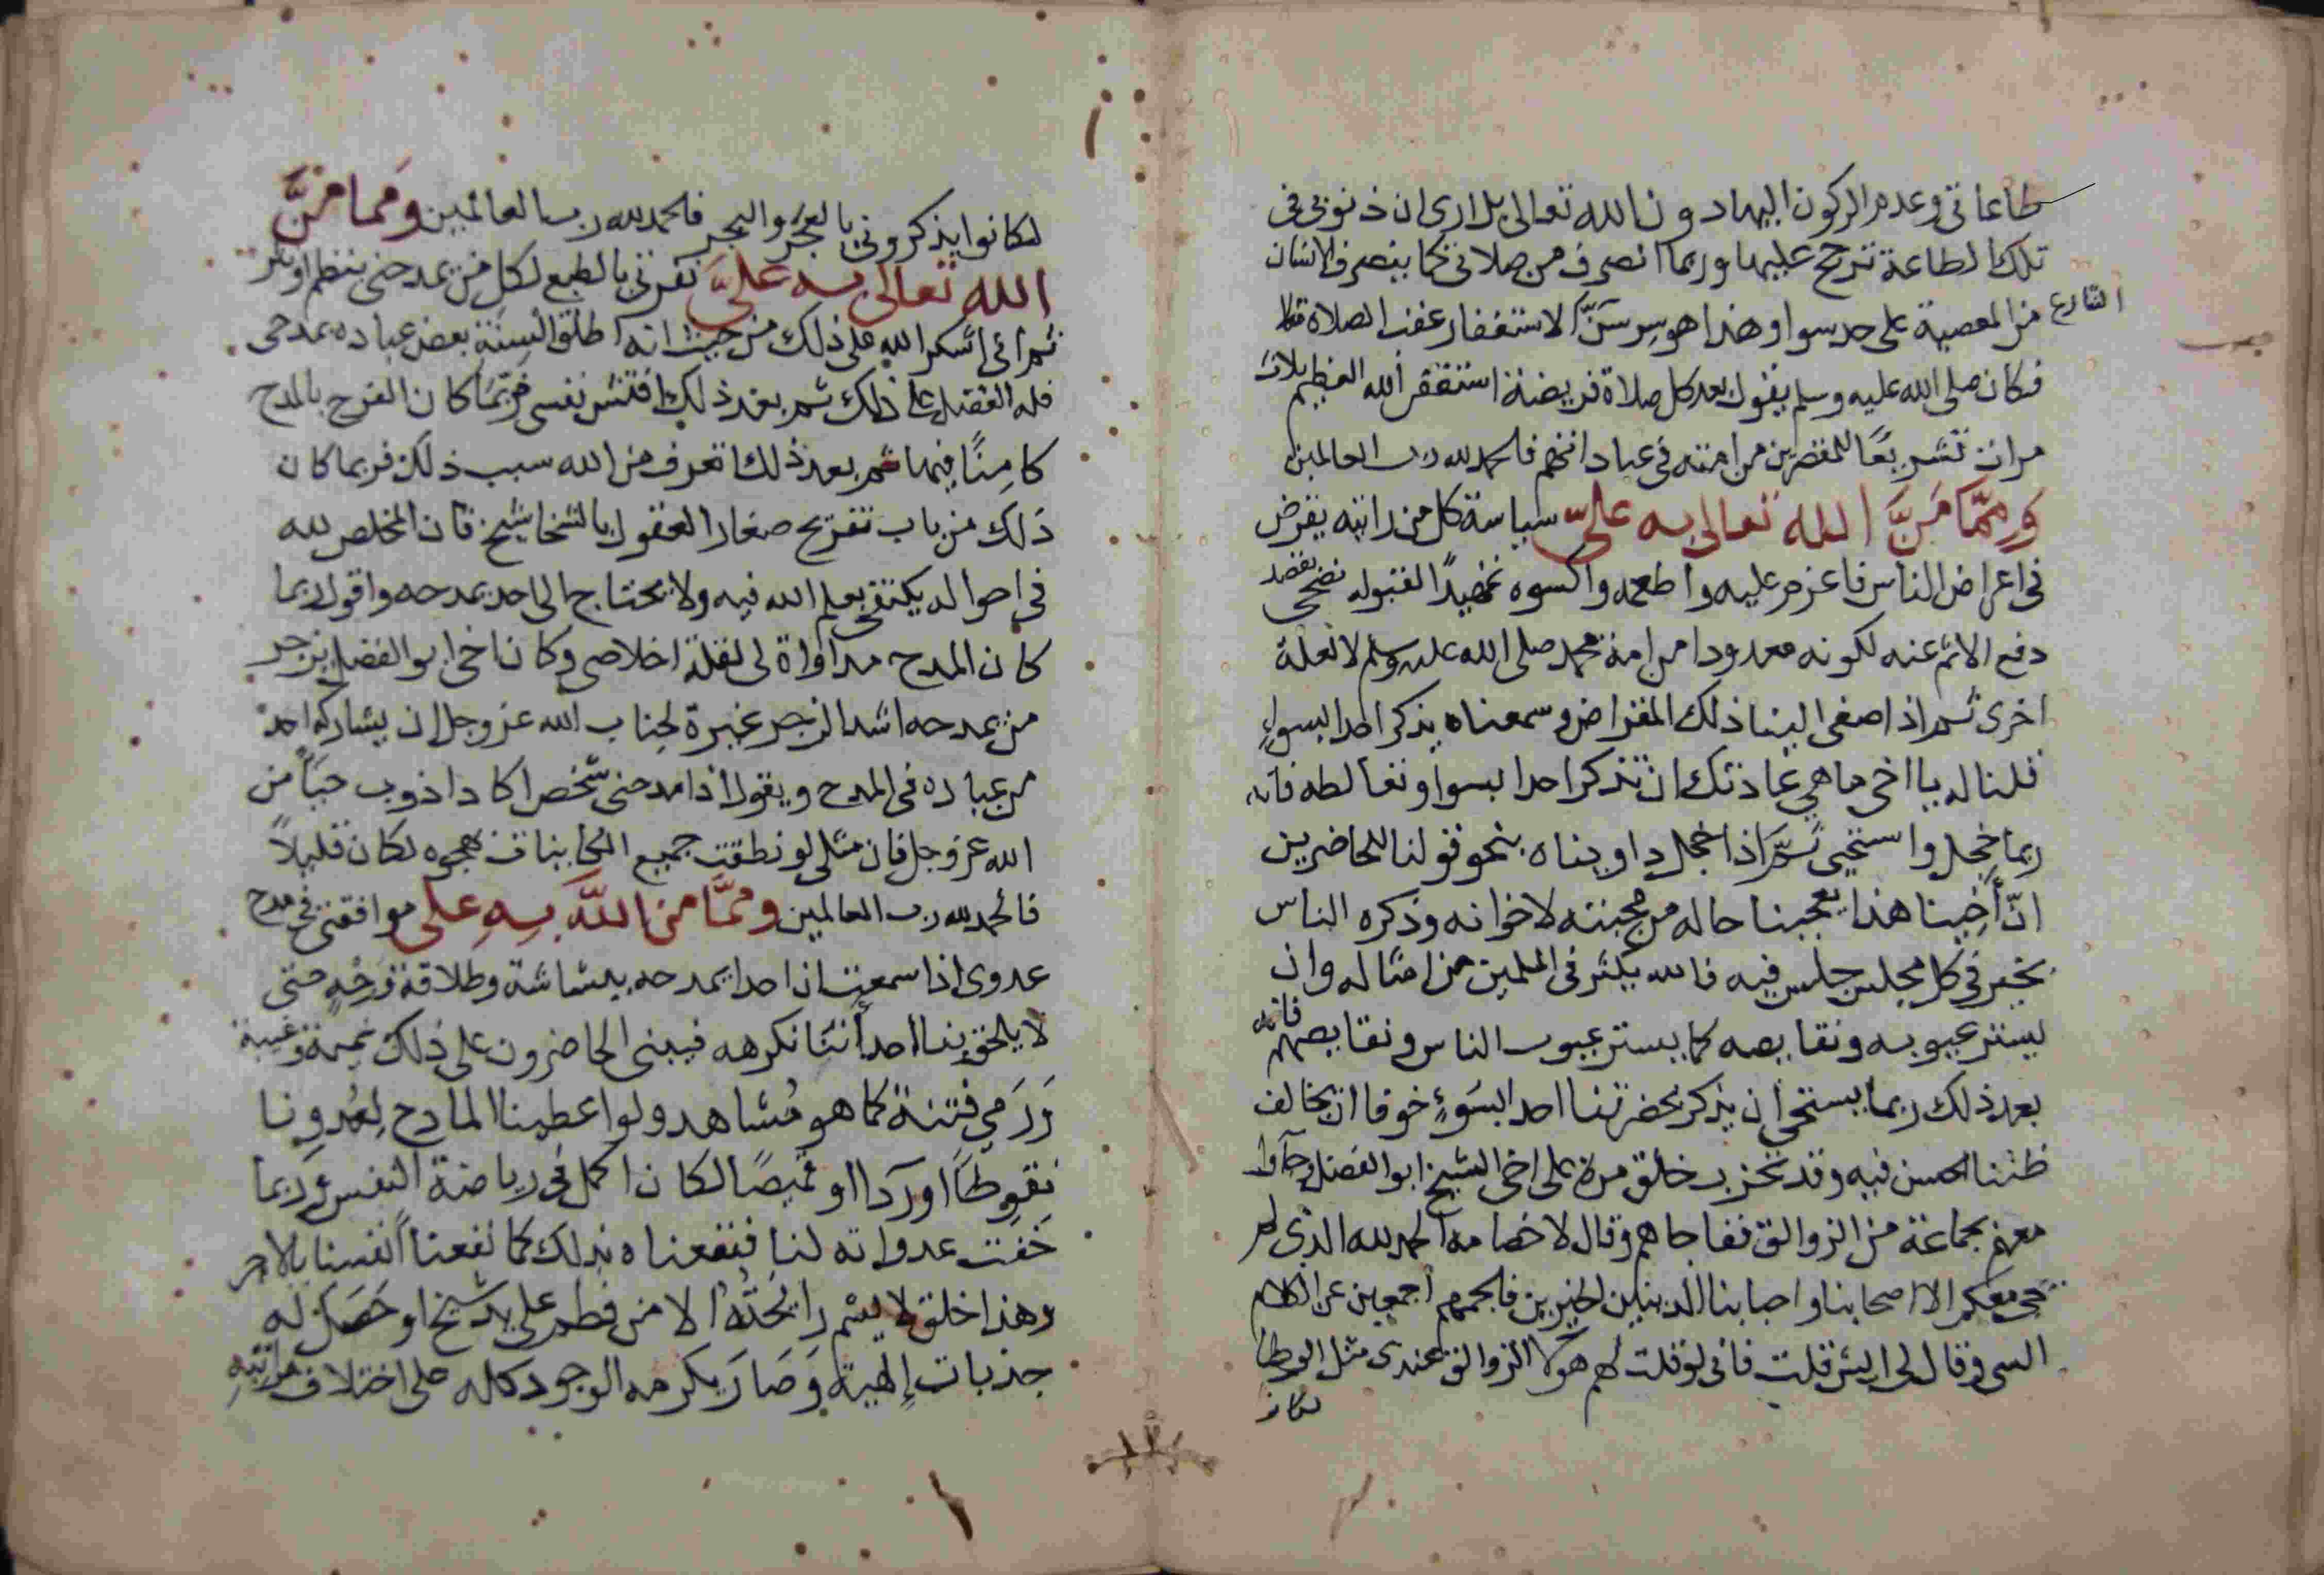 طاعاتي وعدم الركون اليها دون الله تعالى بل ارى ان ذنوبي في
تلك الطاعة ترجح عليها وربما انصرف من صلاتي كما ينصرف الانسان
من المعصية على حد سوا وهذا هو سر سن الاستغفار عقب الصلاة
الشارع
فكان صلى الله عليه وسلم يقول بعد كل صلاة فريضة استغفر الله العظيم ثلاث
مرات تشريعًا للمقصرين من امته في عباداتهم فالحمد لله رب العالمين
ومِمَّا مَنَّ الله تعالى به عليّ سياسة كل من رايته يقرض
في اعراض الناس فاعزم عليه واطعمه واكسوه تمهيدًا لقبوله نصحي بقصد
دفع الاثم عنه لكونه معدودا من امة محمد صلى الله عليه وسلم لا لعلة
اخرى ثم اذا صغى الينا ذلك المقراض وسمعناه يذكر احدا بسوء
قلنا له يا اخي ما هي عادتك ان تذكر احدا بسوا ونغالطه فانه
ربما خجل واستحيى ثم اذا خجل داويناه بنحو قولنا للحاضرين
انّ أخينا هذا يعجبنا حاله من محبته لاخوانه وذكره الناس
بخير في كل مجلس جلس فيه فالله يكثر في المسلمين من امثاله وان
يستر عيوبه ونقايصه كما يستر عيوب الناس ونقايصهم فانه
بعد ذلك ربما يستحي ان يذكر بحضرتنا احدا بسَوءٍ خوفا ان يخالف
ظننا الحسن فيه وقد تحزب خلق مرة على اخي الشيخ ابو الفضل وجآوا
معهم بجماعة من الزوالق ففاجاهم وقال لاخصامه الحمد لله الذي لم
تجي معكم الا اصحابنا واحبابنا الدينين الخيرين فالجمهم اجمعين عن الكلام
السي وقال لي ايش قلت فاني لو قلت لهم هولا الزوالق عندي مثل الوطا
لكانوا
لكانوا يذكروني بالعجر والبجر فالحمد لله رب العالمين ومما مَنَّ
الله تعالى به عليَّ نفرتي بالطبع لكل من يمدحني بنظم او نثر
ثم اني اشكر الله على ذلك من حيث انه اطلق السنة بعض عباده بمدحي
فله الفضل على ذلك ثم بعد ذلك افتش نفسي فربما كان الفرح بالمدح
كامِنًا فيها ثم بعد ذلك اتعرف من الله سبب ذلك فربما كان
ذلك من باب تفريح صغار العقول بالمشايخ فان المخلص لله
في احواله يكتفي بعلم الله فيه ولا يحتاج الى احد يمدحه واقول ربما
كان المدح مداواة لي لقلة اخلاصي وكان اخي ابو الفضل يزجر
من يمدحه اشد الزجر غيرة لجناب الله عز وجل ان يشاركه احد
من عباده في المدح ويقول اذا مدحني شخص اكاد اذوب حيآ من
الله عز وجل فان مثلي لو نطقت جميع الكاينات بهجوه لكان قليلاً
فالحمد لله رب العالمين وممَّا من اللَّه بهِ على موافقتي في مدح
عدوى اذا سمعت ان احدا يمدحه ببشاشة وطلاقة وَجْهٍ حتى
لا يلحق بنا احد أننا نكرهه فيبنى الحاضرون على ذلك نميمة وغيبة
وَرَمي فتنة كما هو مُشاهد ولو اعطينا المادح لِعُدونا
نقوطًا او ردا او قميصًا لكان اكمل في رياضة النفس وربما
خَفت عدواته لنا فنفعناه بذلك كما نفعنا انفسنا بالاجر
وهذا خلق لا يشم رايحَتهُ الا من فطم على يد شيخ او حَصَل له
جذبات إلهية وَصَارَ يكرمه الوجود كله على اختلاف مراتبهِ